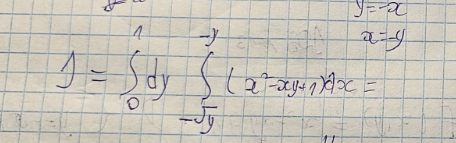 y=-x
x=-y
J = ∫₀¹ dy ∫_{-√y}^{-y} (x²-xy+1)dx =